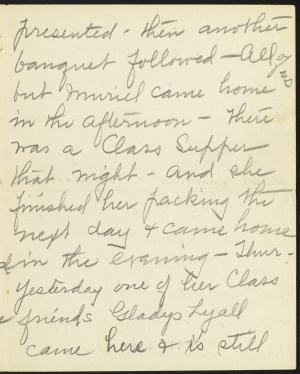 presented - then another
banquet followed - All of us
but Muriel came home
in the afternoon - there
was a Class Supper
that night - and she
finished her packing the
next day & came home
in the evening - Thur -
Yesterday one of her Class
friends Gladys Lyall
came here & is still